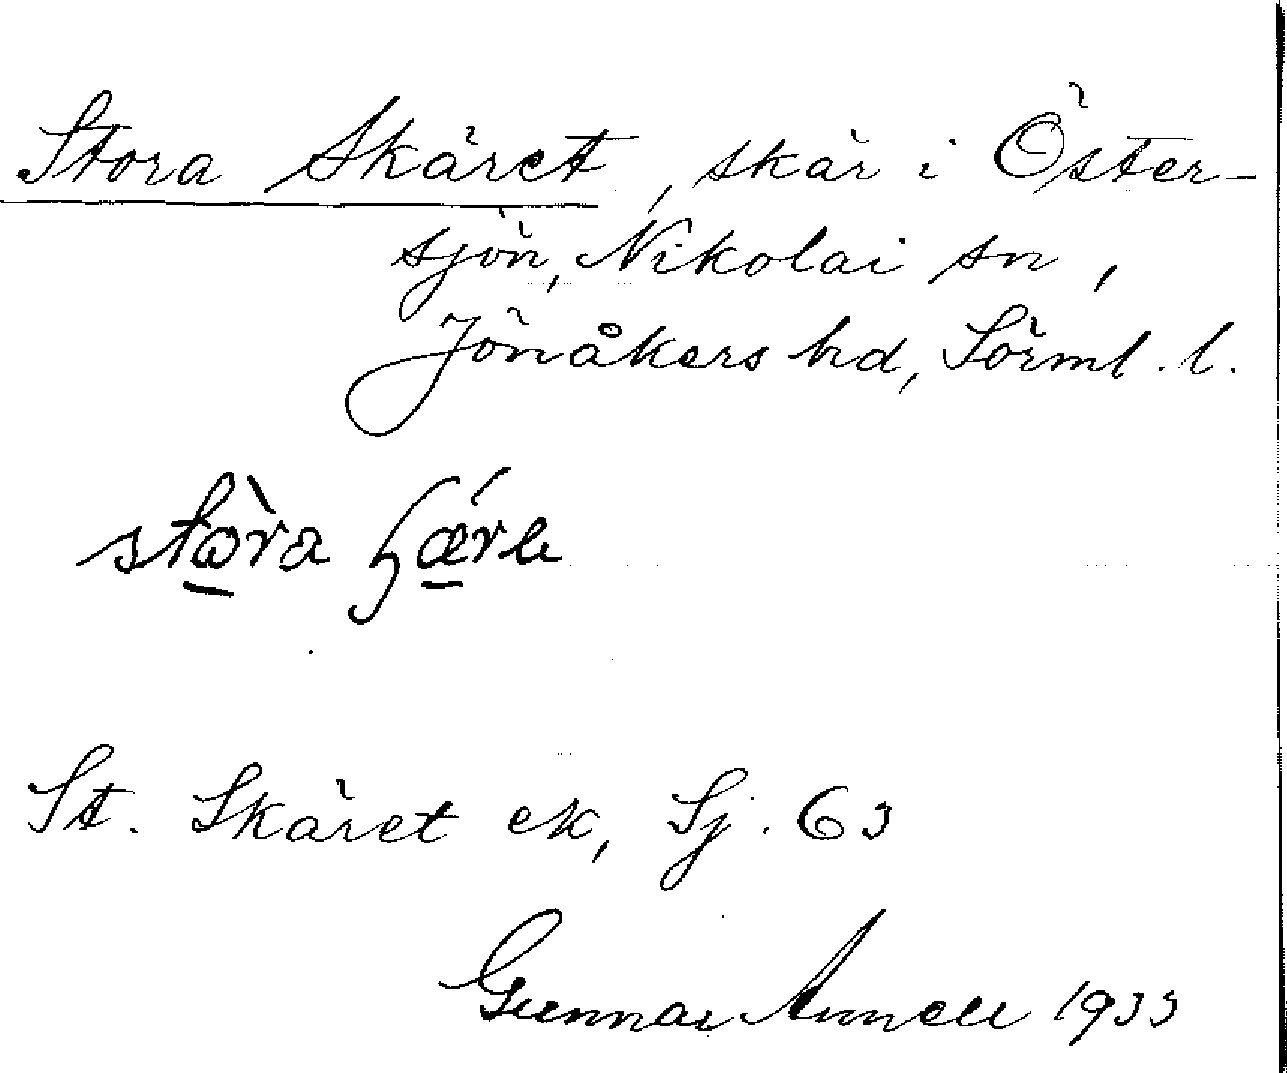 Stora Skäret, skär i Öster-
sjön, Nikolai sn,
Jönåkers hd, Sörml. l.
stɷ̀ra
St. Skäret ek, Sj. 63
Gunnar Annell 1933